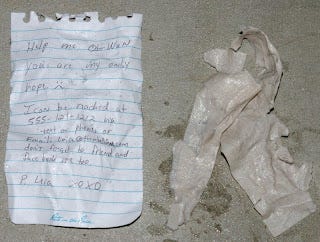 Help me Obi Wan
you are my only
hope
I can be reached at
555-121-1212 via
text or phone or
Email
don't forget to friend and
face book me too
P. Leia XOXO